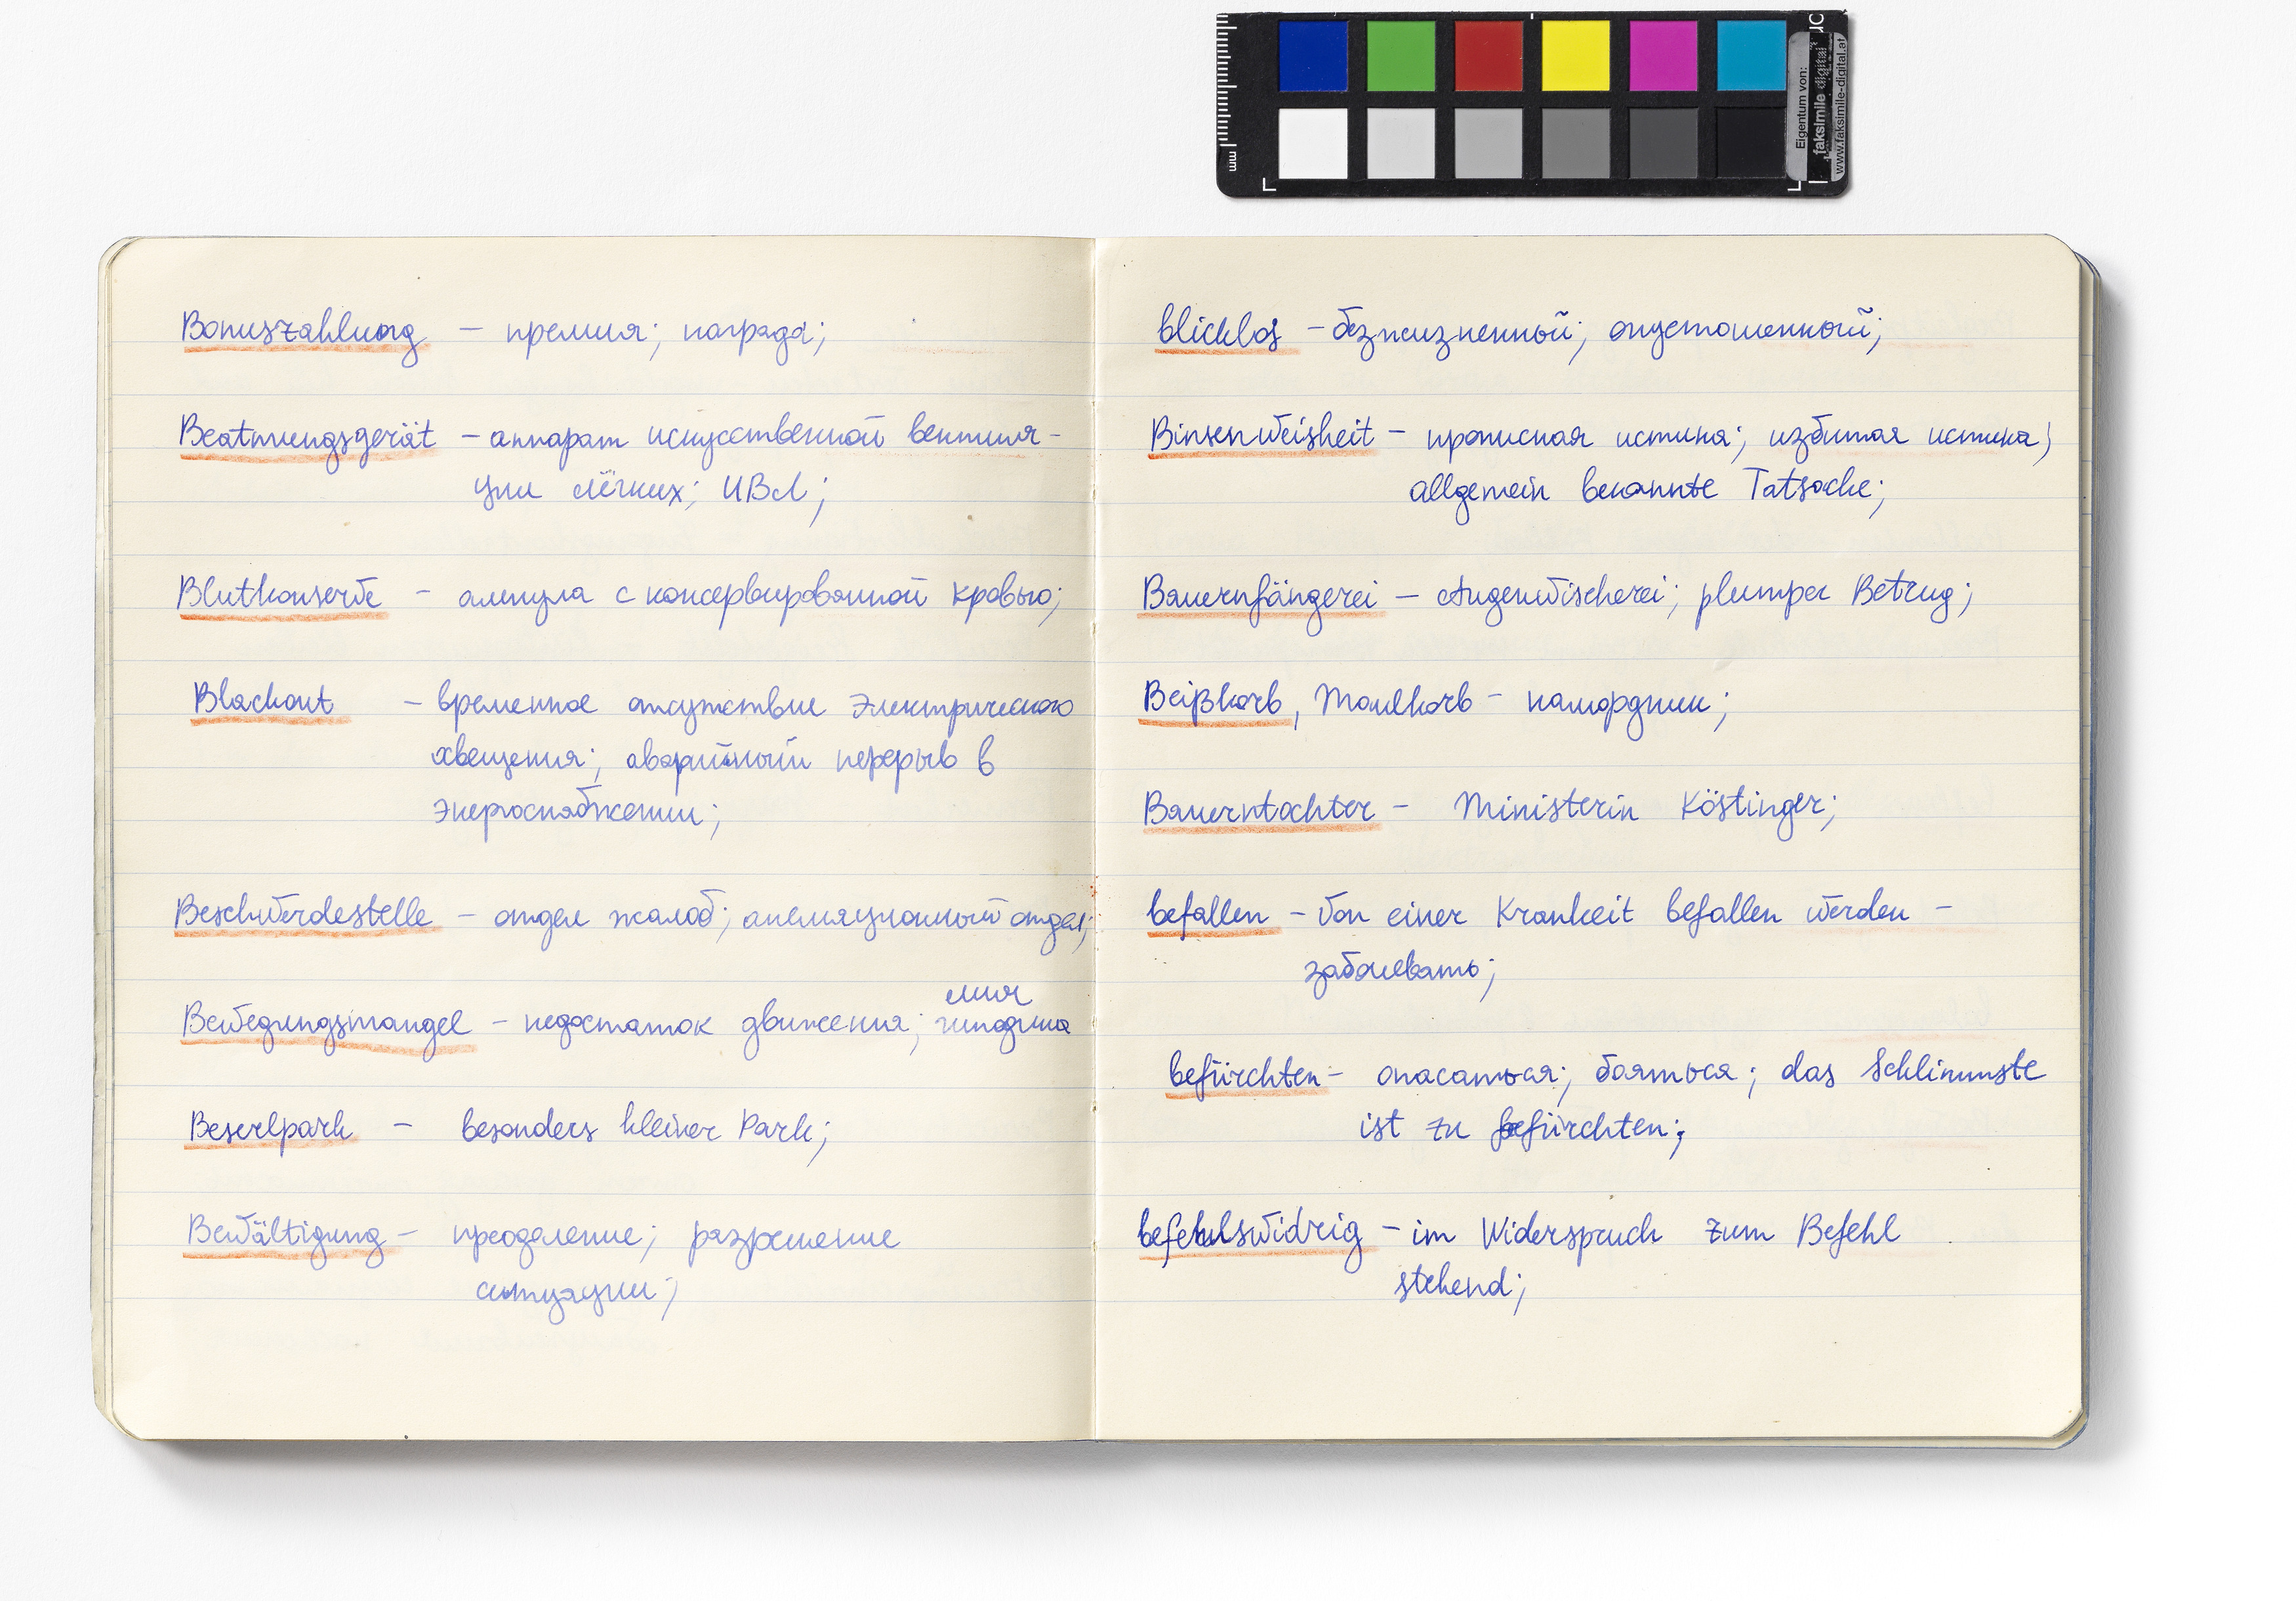 Bonuszahlung – премия; награда;
Beatmungsgerät – аппарат искусственной вентиля-
ции лёгких; ИВЛ;
Blutkonserve – ампула с консервированной кровью;
Blackout – временное отсутствие электрического
освещения; аварийный перерыв в
энергоснабжении;
Beschwerdestelle – отдел жалоб; апелляционный отдел;
Bewegungsmangel – недостаток движения; гиподина
мия
Beserlpark – besonders kleiner Park;
Bewältigung – преодоление; разрешение
ситуации;
blicklos – безжизненный; опустошенный;
Binsenweisheit – прописная истина; избитая истина;
allgemein bekannte Tatsache;
Bauernfängerei – Augenwischerei; plumper Betrug;
Beißkorb, Maulkorb – намордник;
Bauerntochter – Ministerin Köstinger;
befallen – von einer Krankeit befallen werden –
заболевать;
befürchten – опасаться; бояться; das Schlimmste
ist zu befürchten;
befehlswidrig – im Widerspruch zum Befehl
stehend;
mm
Eigentum von:
faksimile digital
www.faksimile-digital.at